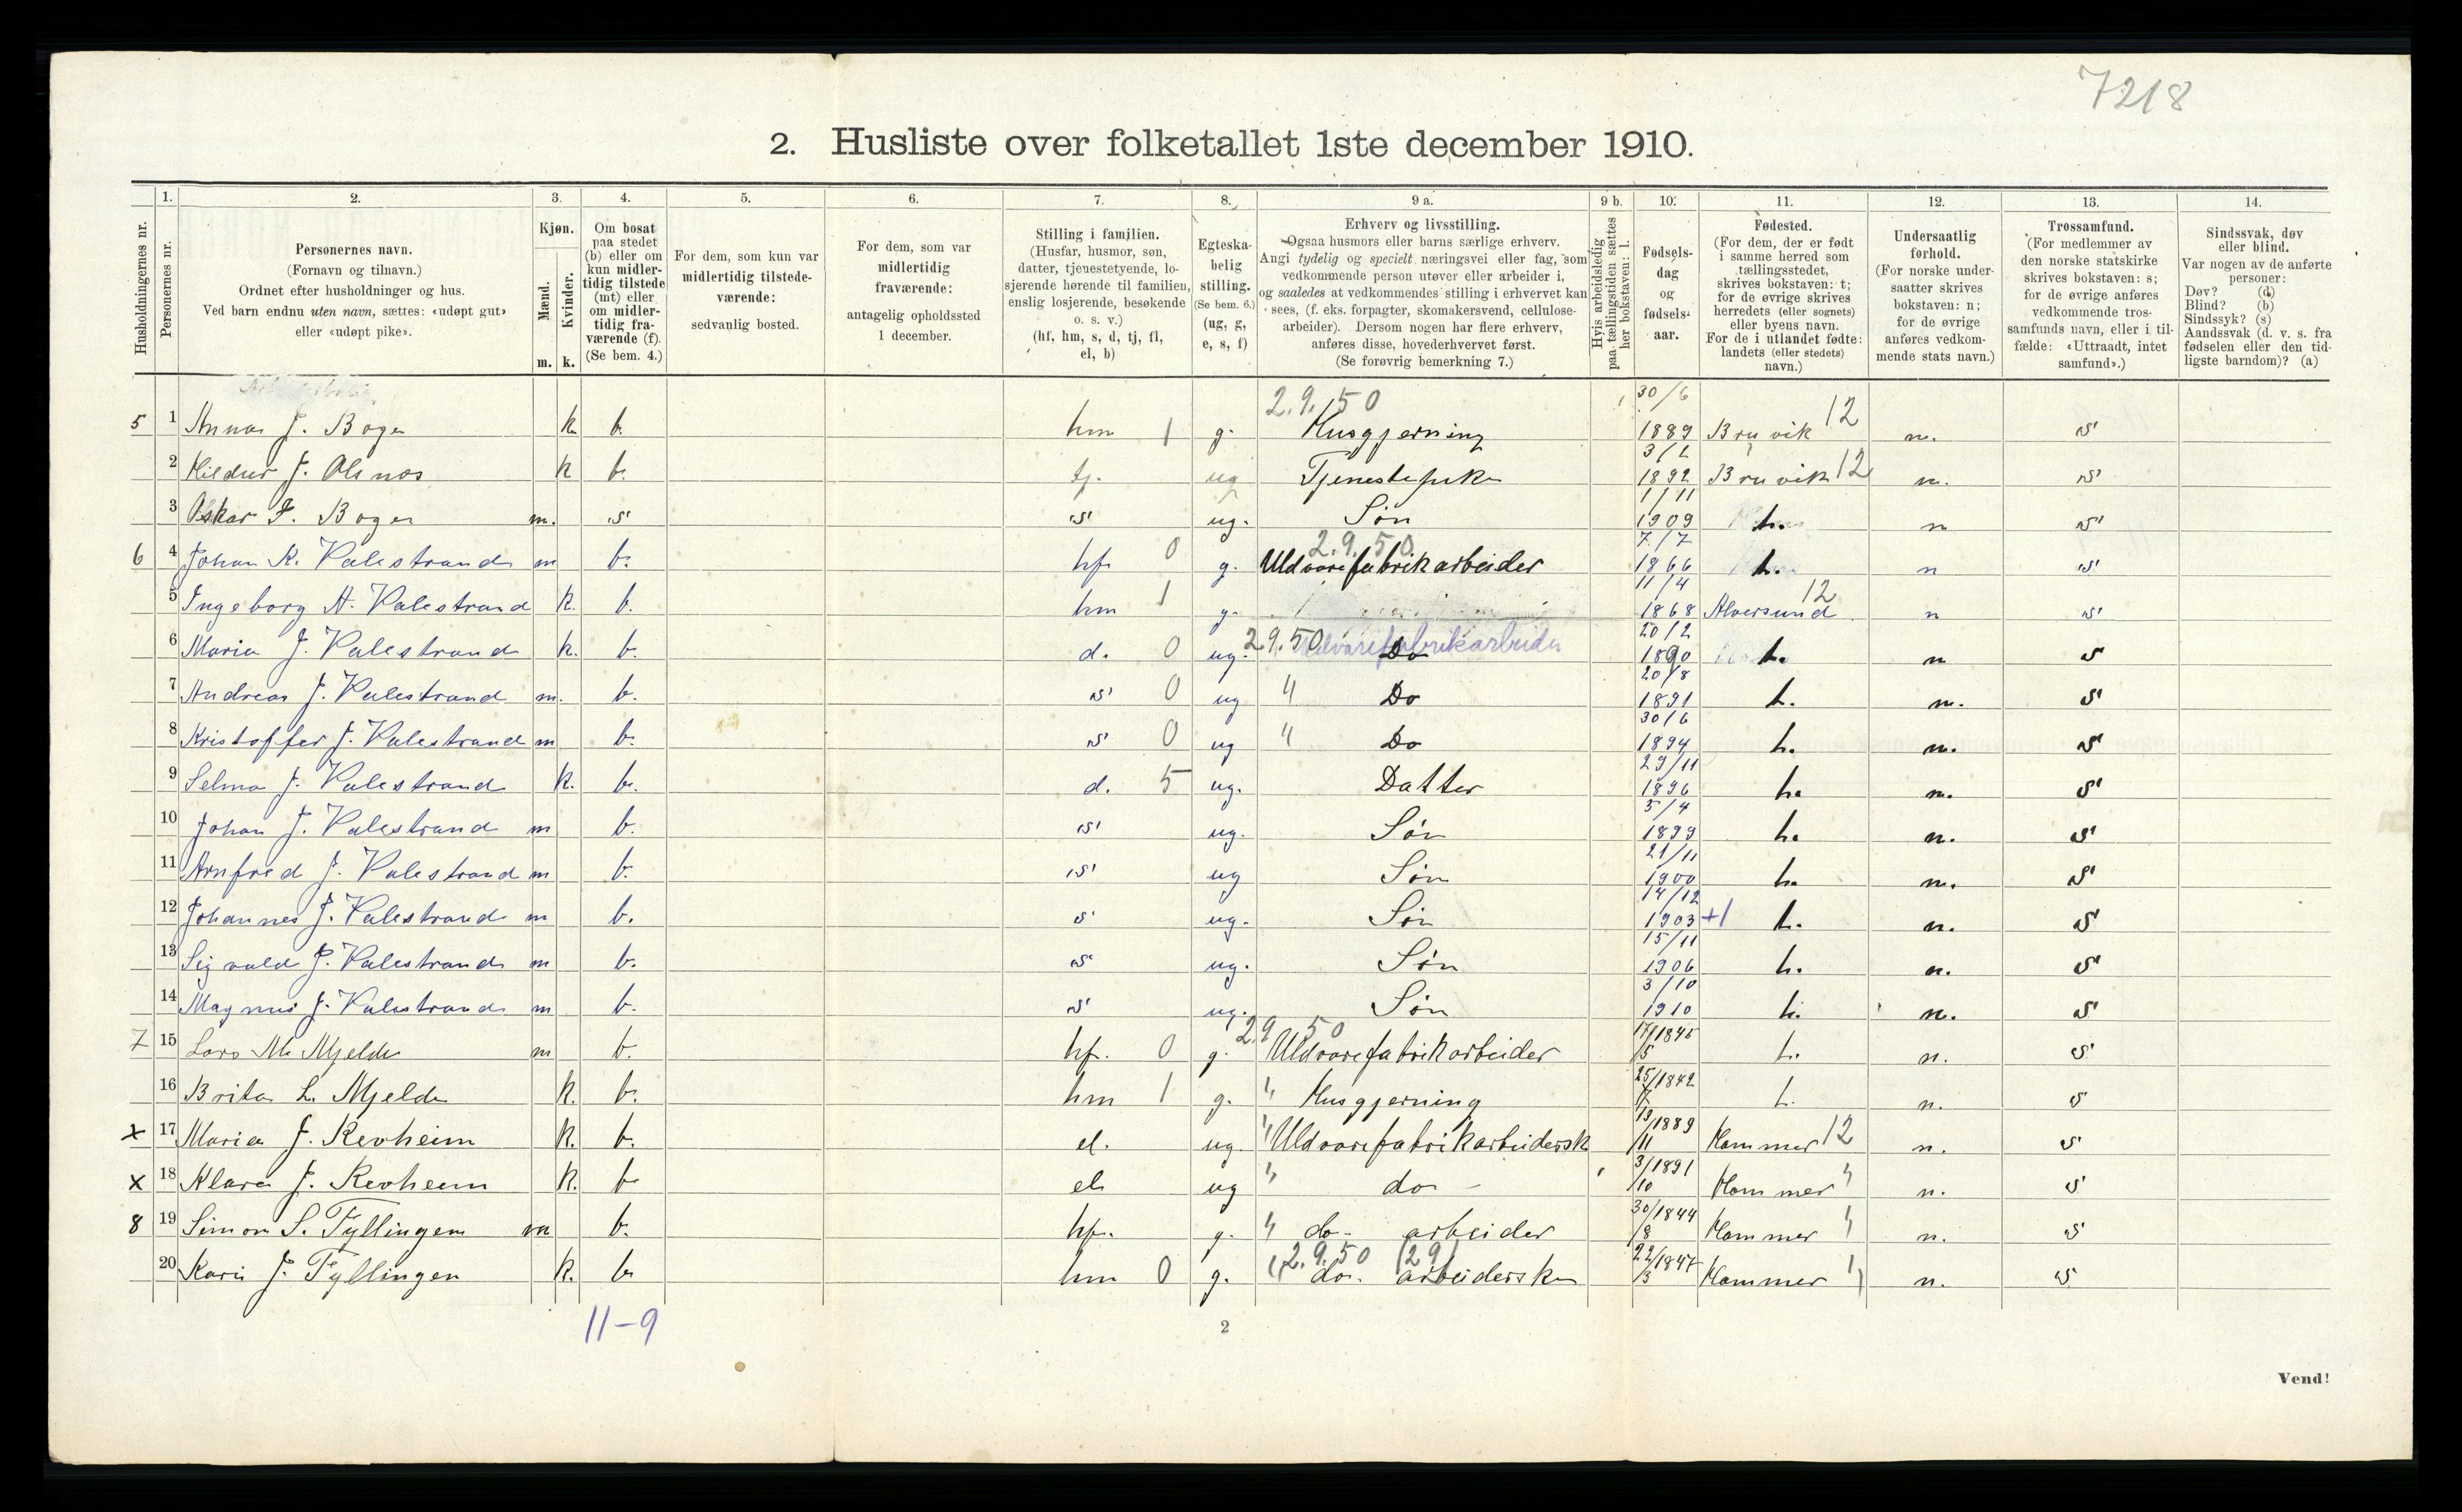 7218
2. Husliste over folketallet 1ste december 1910.
1. 2. 3. 4. 5. 6. 7. 8. 9 a. 9 b. 10. 11. 12. 13. 14.
Husholdningernes nr.
Personernes nr.
Personernes navn.
(Fornavn og tilnavn.)
Ordnet efter husholdninger og hus.
Ved barn endnu uten navn, sættes: «udøpt gut»
eller «udøpt pike».
Kjøn.
Mænd.
Kvinder.
m. k.
Om bosat
paa stedet
(b) eller om
kun midler-
tidig tilstede
(mt) eller
om midler-
tidig fra-
værende (f).
(Se bem. 4.)
For dem, som kun var
midlertidig tilstede-
værende:
sedvanlig bosted.
For dem, som var
midlertidig
fraværende:
antagelig opholdssted
1 december.
Stilling i familien.
(Husfar, husmor, søn,
datter, tjenestetyende, lo-
sjerende hørende til familien,
enslig losjerende, besøkende
o. s. v.)
(hf, hm, s, d, tj, fl,
el, b)
Egteska-
belig
stilling.
(Se bem. 6.)
(ug, g,
e, s, f)
Erhverv og livsstilling.
Ogsaa husmors eller barns særlige erhverv.
Angi tydelig og specielt næringsvei eller fag, som
vedkommende person utøver eller arbeider i,
og saaledes at vedkommendes stilling i erhvervet kan
sees, (f. eks. forpagter, skomakersvend, cellulose-
arbeider). Dersom nogen har flere erhverv,
anføres disse, hovederhvervet først.
(Se forøvrig bemerkning 7.)
Hvis arbeidsledig
paa tællingstiden sættes
her bokstaven: l.
Fødsels-
dag
og
fødsels-
aar.
Fødested.
(For dem, der er født
i samme herred som
tællingsstedet,
skrives bokstaven: t;
for de øvrige skrives
herredets (eller sognets)
eller byens navn.
For de i utlandet fødte:
landets (eller stedets)
navn.)
Undersaatlig
forhold.
(For norske under-
saatter skrives
bokstaven: n;
for de øvrige
anføres vedkom-
mende stats navn.)
Trossamfund.
(For medlemmer av
den norske statskirke
skrives bokstaven: s;
for de øvrige anføres
vedkommende tros-
samfunds navn, eller i til-
fælde: «Uttraadt, intet
samfund».)
Sindssvak, døv
eller blind.
Var nogen av de anførte
personer:
Døv? (d)
Blind? (b)
Sindssyk? (s)
Aandssvak (d. v. s. fra
fødselen eller den tid-
ligste barndom)? (a)
5 1 Anna J. Boge k b. hm 1 g. 2.9.50 Husgjerning 30/6 1889 Bruvik 12 n. s
2 Hildur J. Olsnes k b. tj. ug Tjenestepike 3/2 1892 Bruvik 12 n. s
3 Oskar J. Boge m. s s ug. Søn 1/11 1909 h. n s
6 4 Johan K. Valestrand m b. hf 0 g. 2.9.50 Uldvarefabrikarbeider 7/7 1866 h. n s
5 Ingeborg A. Valestrand k. b. hm 1 g. 11/4 1868 Alversund 12 n s
6 Maria J. Valestrand k. b. d. 0 ug. 2.9.50 Uldvarefabrikarbeider Do 20/2 1890 h. n s
7 Andreas J. Valestrand m. b. s 0 ug " Do 20/8 1891 h. n. s
8 Kristoffer J. Valestrand m b. s 0 ug " Do 30/6 1894 h. n. s
9 Selma J. Valestrand k. b. d. 5 ug. Datter 29/11 1896 h. n. s
10 Johan J. Valestrand m b. s ug. Søn 5/4 1899 h. n. s
11 Arnfred J. Valestrand m b. s ug Søn 21/11 1900 h. n. s
12 Johannes J. Valestrand m b. s ug. Søn 14/12 1903 +1 h. n. s
13 Sigvald J. Valestrand m b. s ug. Søn 15/11 1906 h. n. s
14 Magnus J. Valestrand m b. s ug. Søn 3/10 1910 h. n. s
7 15 Lars M. Mjelde m b. hf. 0 g. 2.9 50 Uldvarefabrikarbeider 17/5 1845 h. n. s
16 Brita L. Mjelde k. b. hm 1 g. " Husgjerning 25/7 1842 h. n. s
x 17 Maria J. Revheim k. b. el. ug. " Uldvarefabrikarbeidersk 13/11 1889 Hammer 12 n. s
x 18 Klara J. Revheim k. b el ug " do - 3/10 1891 Hammer " n. s
8 19 Simon S. Tyllingen m b. hf. g. " do - arbeider 30/8 1844 Hammer " n. s
20 Kari J. Tyllingen k. b hm 0 g. " 2.9.50 (29) do. arbeiderske 22/3 1847 Hammer " n. s
11-9
2
Vend!